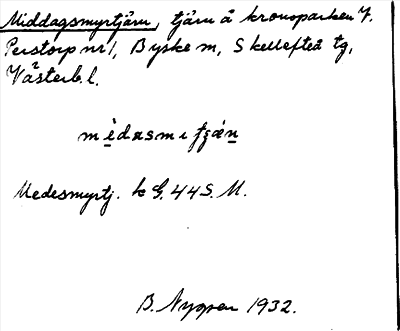 Middagsmyrtjärn, tjärn å kronoparken V.
Perstorp nr 1, Byske sn, Skellefteå tg,
Västerb. l.
Medesmyrtj. k G. 44 S. M.
B. Nygren 1932.